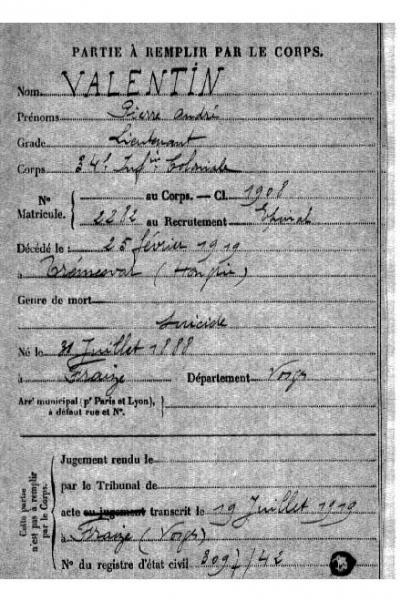 PARTIE À REMPLIR PAR LE CORPS.
Nom VALENTIN
Prénoms Pierre André
Grade Lieutenant
Corps 34e Infie Coloniale
No Matricule. { au Corps. — Cl. 1908
2282 au Recrutement Epinal
Décédé le : 25 février 1919
à Trémesvar (Hongrie)
Genre de mort
Suicide
Né le 30 Juillet 1888
à Fraize Département Vosges
Arrt municipal (pr Paris et Lyon), à défaut rue et No.
Cette partie n'est pas à remplir par le Corps.
Jugement rendu le
par le Tribunal de
acte ou jugement transcrit le 19 Juillet 1919
à Fraize (Vosges)
No du registre d'état civil 3097/42